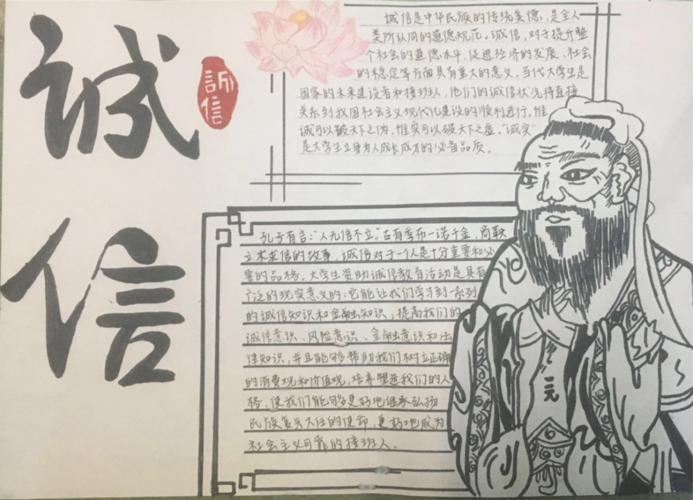 诚信
诚信
诚信是中华民族的传统美德,是全人
类所认同的道德规范。诚信,对于提升整
个社会的道德水平,促进经济的发展、社会
的稳定等方面具有重大的意义。当代大学生是
国家的未来建设者和接班人,他们的诚信状况将直接
关系到我国社会主义现代化建设的顺利进行。惟
诚可以破天下之伪,惟实可以破天下之虚。"诚实"
是大学生立身为人成长成才的必备品质。
孔子有言:"人无信不立。"古有季布一诺千金,商鞅
立木求信的故事,诚信对于一个人是十分重要和必
要的品格。大学生资助诚信教育活动是具有
广泛的现实意义的:它能让我们学习到一系列
的诚信知识和金融知识,提高我们的
诚信意识、风险意识、金融意识和法
律知识,并且能够帮助我们树立正确
的消费观和价值观,培养塑造我们的人
格,使我们能够更好地继承弘扬
民族复兴大任的使命,更好地成为
社会主义可靠的接班人。
一元